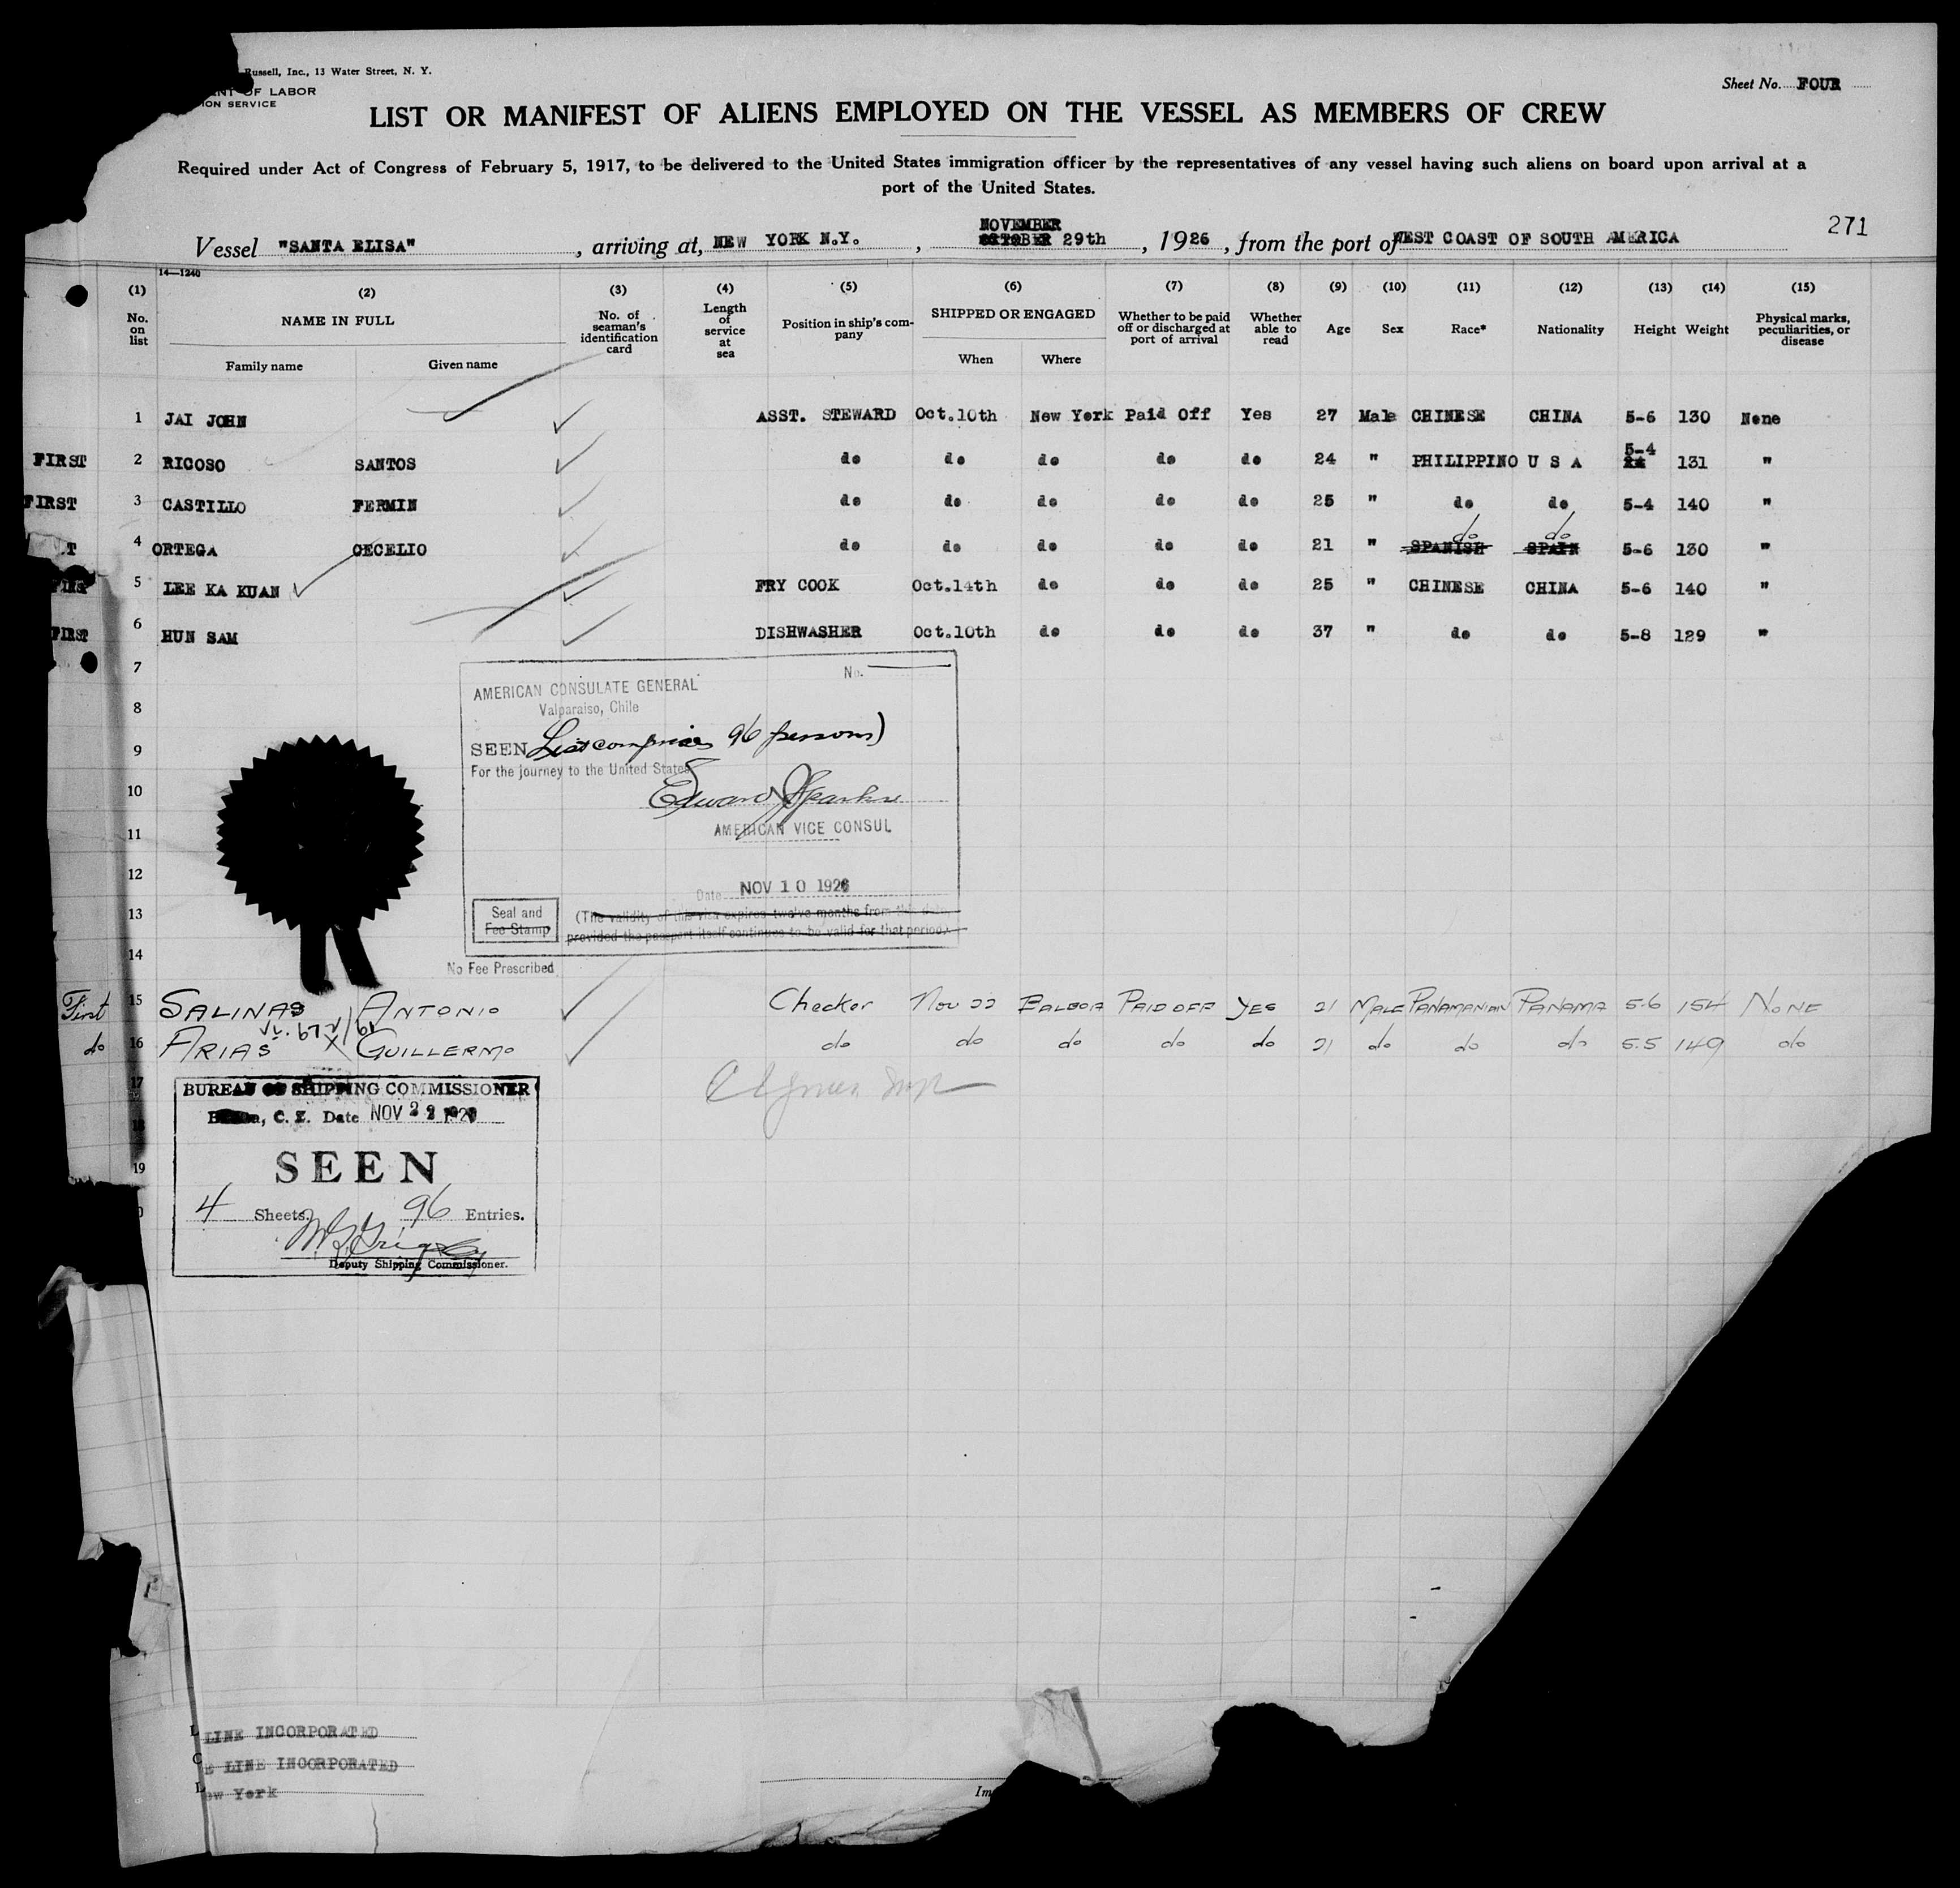 Russell, Inc., 13 Water Street, N. Y.
OF LABOR
ION SERVICE
Sheet No. FOUR
LIST OR MANIFEST OF ALIENS EMPLOYED ON THE VESSEL AS MEMBERS OF CREW
Required under Act of Congress of February 5, 1917, to be delivered to the United States immigration officer by the representatives of any vessel having such aliens on board upon arrival at a
port of the United States.
271
NOVEMBER
Vessel "SANTA ELISA", arriving at, NEW YORK N.Y., OCTOBER 29th, 1926, from the port of WEST COAST OF SOUTH AMERICA
14—1240
(1) (2) (3) (4) (5) (6) (7) (8) (9) (10) (11) (12) (13) (14) (15)
No. on list NAME IN FULL Family name Given name No. of seaman's identification card Length of service at sea Position in ship's company SHIPPED OR ENGAGED When Where Whether to be paid off or discharged at port of arrival Whether able to read Age Sex Race* Nationality Height Weight Physical marks, peculiarities, or disease
1 JAI JOHN ASST. STEWARD Oct.10th New York Paid Off Yes 27 Male CHINESE CHINA 5-6 130 None
5-4
FIRST 2 RICOSO SANTOS do do do do do 24 " PHILIPPINO U S A 131 "
FIRST 3 CASTILLO FERMIN do do do do do 25 " do do 5-4 140 "
do do
T 4 ORTEGA CECELIO do do do do do 21 " SPANISH SPAIN 5-6 130 "
FIRST 5 LEE KA KUAN FRY COOK Oct.14th do do do 25 " CHINESE CHINA 5-6 140 "
FIRST 6 HUN SAM DISHWASHER Oct.10th do do do 37 " do do 5-8 129 "
7
8
9
10
11
12
13
14
No.
AMERICAN CONSULATE GENERAL
Valparaiso, Chile
SEEN List comprises 96 persons)
For the journey to the United States
Edward
AMERICAN VICE CONSUL
Date NOV 10 1926
Seal and
Fee Stamp
(The validity of this visa expires twelve months from this date
provided the passport itself continues to be valid for that period.
No Fee Prescribed
First 15 SALINAS ANTONIO Checker Nov 22 BALBOA PAID OFF YES 21 MALE PANAMANIAN PANAMA 5-6 154 NONE
do 16 ARIAS GUILLERMO do do do do do 21 do do do 5.5 149 do
17
18
19
BUREAU OF SHIPPING COMMISSIONER
C. Z. Date NOV 22
SEEN
4 Sheets. 96 Entries.
Deputy Shipping Commissioner.
LINE INCORPORATED
E LINE INCORPORATED
ew York
Im